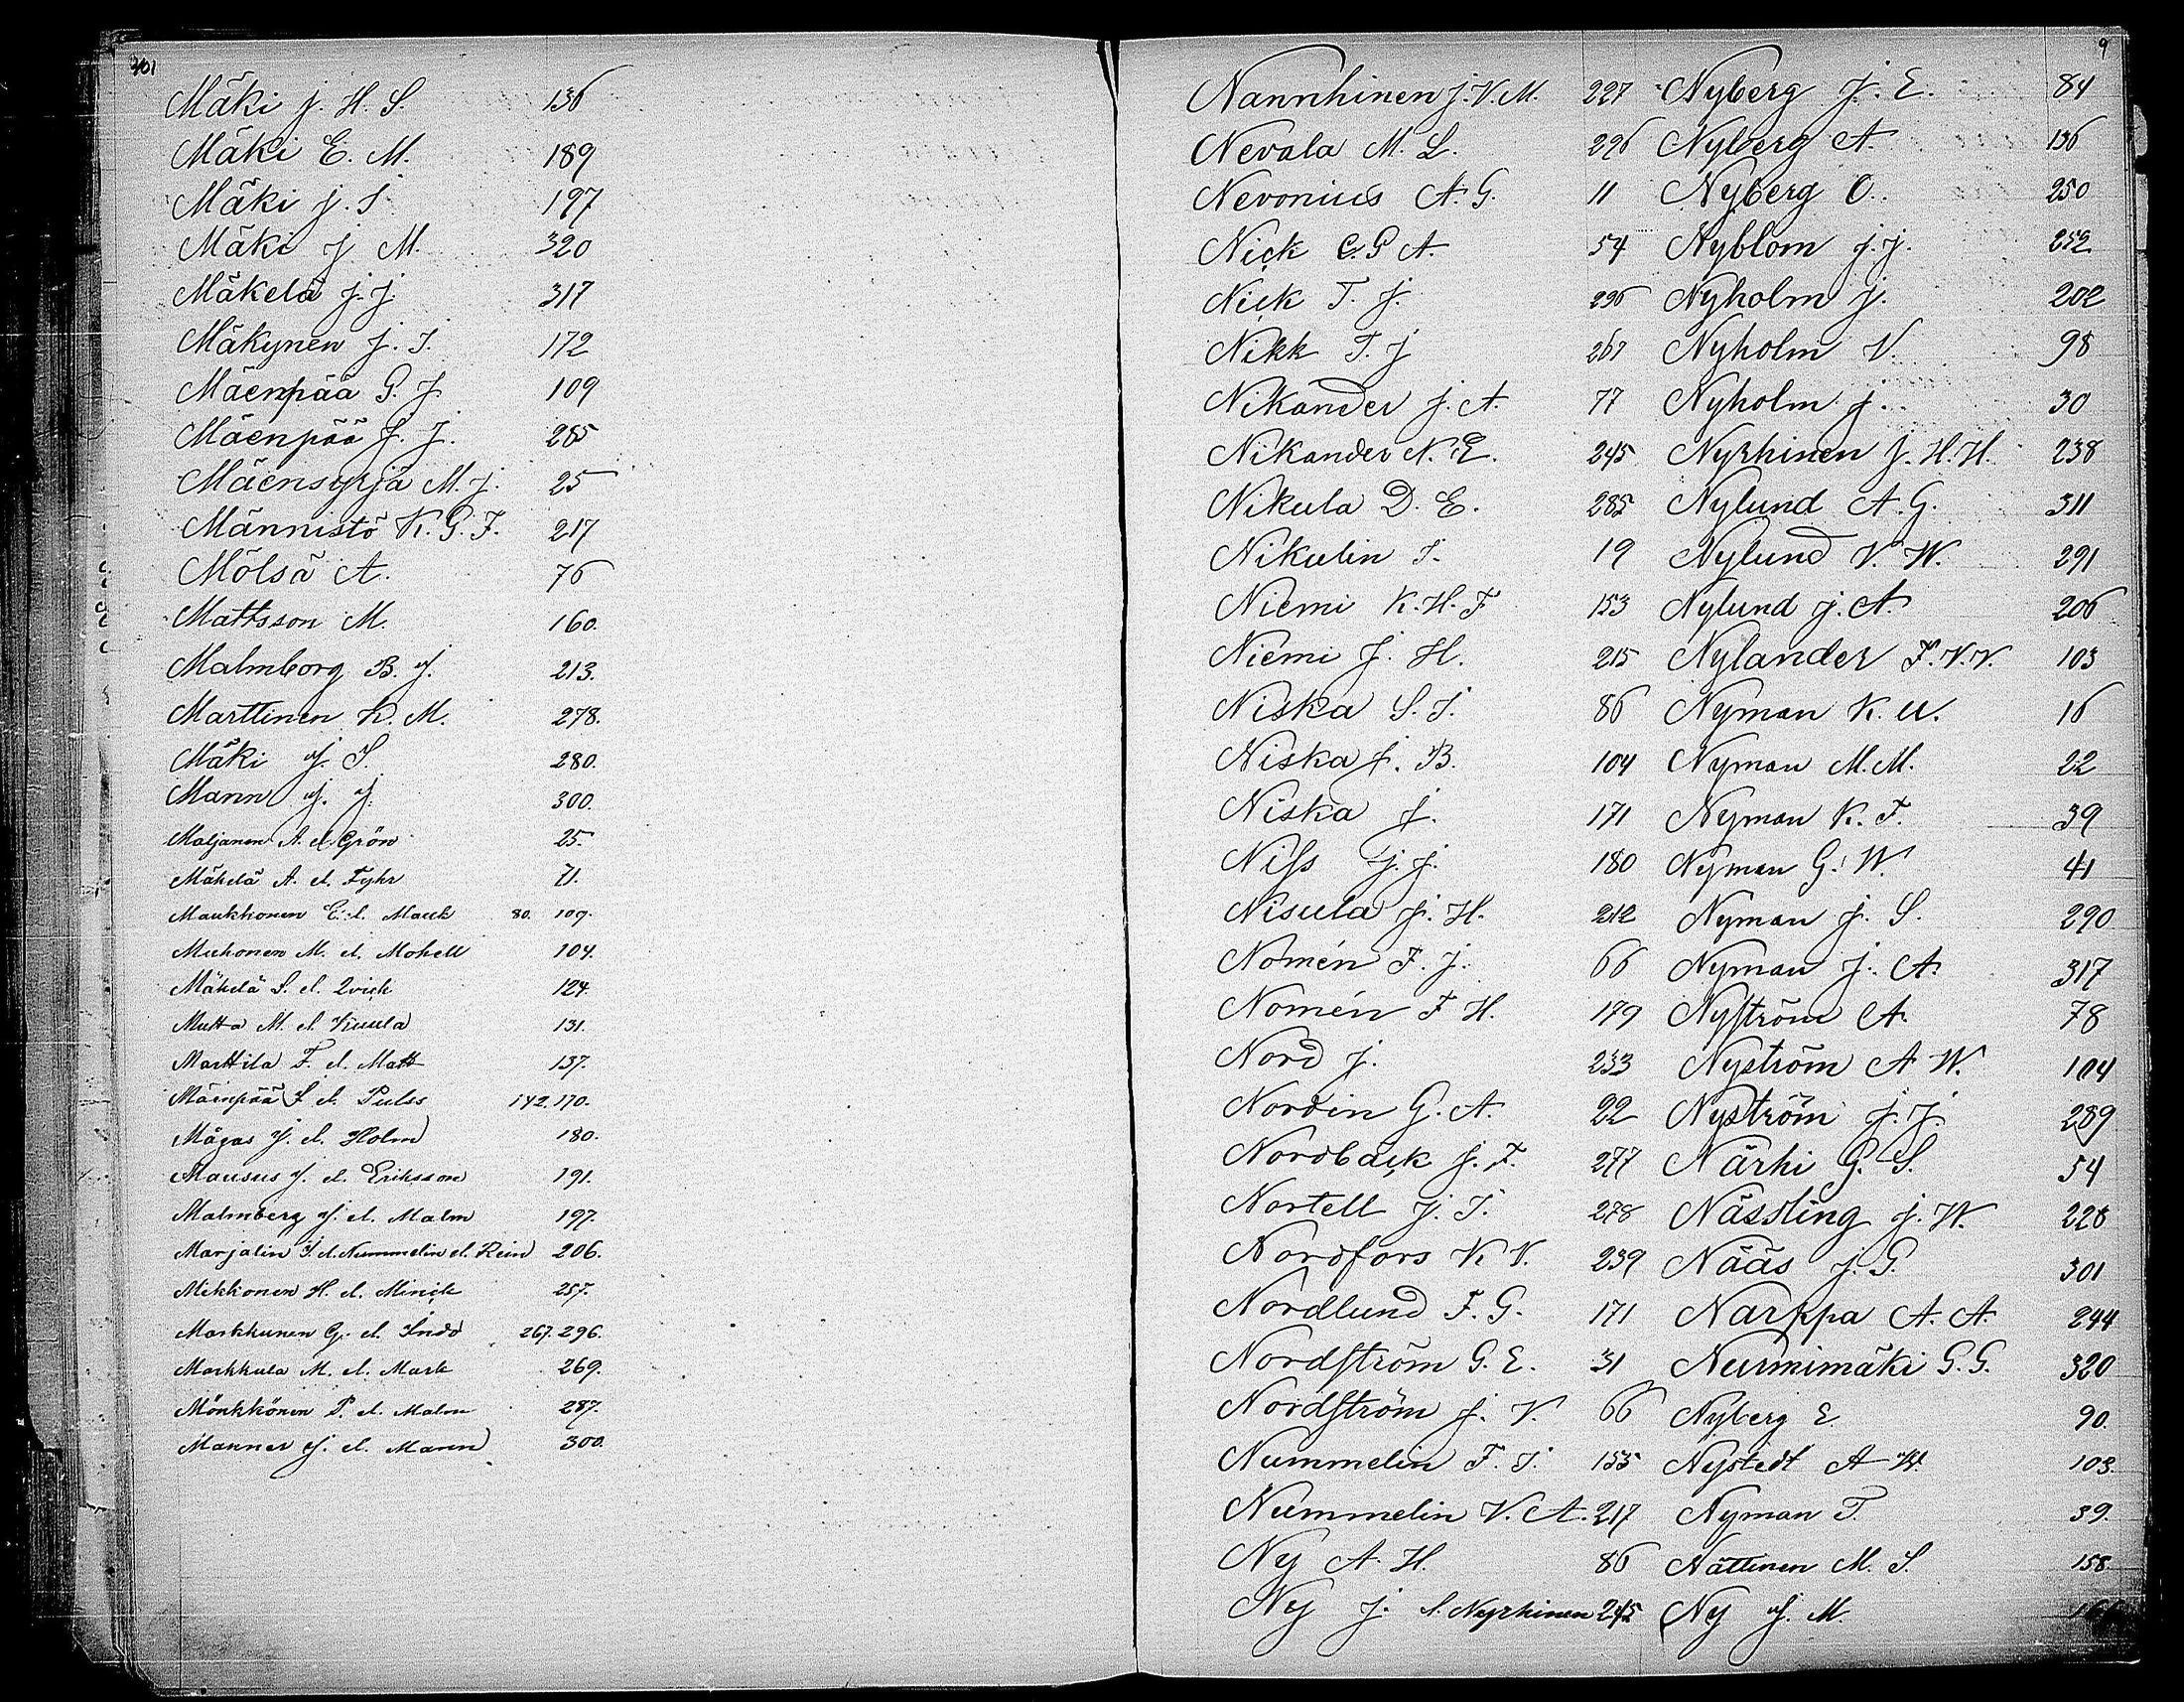 301
Mäki J. H. S. 136
Mäki E. M. 189
Mäki J. S 197
Mäki J M. 320
Mäkelä J. J. 317
Mäkynen J. S. 172
Mäenpää G. J. 109
Mäenpää J. J. 285
Mäensyrjä M. J. 25
Männistö K. G. F. 217
Mölsä A. 76
Mattsson M. 160.
Malmborg B. J. 213.
Marttinen K. M. 278.
Mäki J. S. 280.
Mann J. J. 300.
Maljanen A. el. Grön 25.
Mäkelä A. el. Fyhr 71.
Maukkonen E. el. Mauk 80. 109.
Muhonen M. el. Mohell 104.
Mäkelä S. el. Qvick 124.
Mutta M. el. Kuula 131.
Marttila F. el. Matt 137.
Mäenpää S el. Puls 142. 170.
Mägas J. el. Holm 180.
Mausus J. el. Eriksson 191.
Malmberg J. el. Malm 197.
Marjalin S. el. Nummelin el. Rein 206.
Mikkonen H. el. Minck 257.
Markkunen G. el. Indo 267. 296.
Markkula M. el. Mark 269.
Mönkkönen P. el. Malm 287.
Manner J. el. Mann 300.
9
Nannhinen J. V. M. 227
Nevala M. L. 296
Nevonius A. G. 11
Nick C. G A. 54
Nick T. J. 296
Nikk T. J 267
Nikander J. A. 77
Nikander N. E. 245
Nikula D. E. 285
Nikulin S. 19
Niemi K. H. F 153
Niemi J. H. 215
Niska S. S. 86
Niska J. B. 104
Niska J. 171
Niss J. J. 180
Nisula J. H. 212
Nomén F. J. 66
Nomén F H. 179
Nord J. 233
Nordin G. A. 22
Nordback J. F. 277
Nortell J. S. 278
Nordfors K V. 239
Nordlund F. G. 171
Nordström G. E. 31
Nordström J. V. 66
Nummelin F. S. 153
Nummelin V. A. 217
Ny A. H. 86
Ny J. l. Nyrhinen 245
Nyberg J. E. 84
Nyberg A. 136
Nyberg O. 250
Nyblom J. J. 252
Nyholm J. 202
Nyholm V. 98
Nyholm J. 30
Nyrhinen J. H. H. 238
Nylund A. G. 311
Nylund V. W. 291
Nylund J. A. 206
Nylander F. V. V. 103
Nyman K. U. 16
Nyman M. M. 22
Nyman K. F. 39
Nyman G. W. 41
Nyman J. S. 290
Nyman J. A. 317
Nyström A. 78
Nyström A W. 104
Nyström J. J. 289
Närhi G. S. 54
Nässling J. W. 228
Nääs J. G. 301
Narkpa A. A. 244
Nurmimäki G. G. 320
Nyberg E. 90.
Nystedt A W. 103.
Nyman T. 39.
Nättinen M. S. 158
Ny J. M.